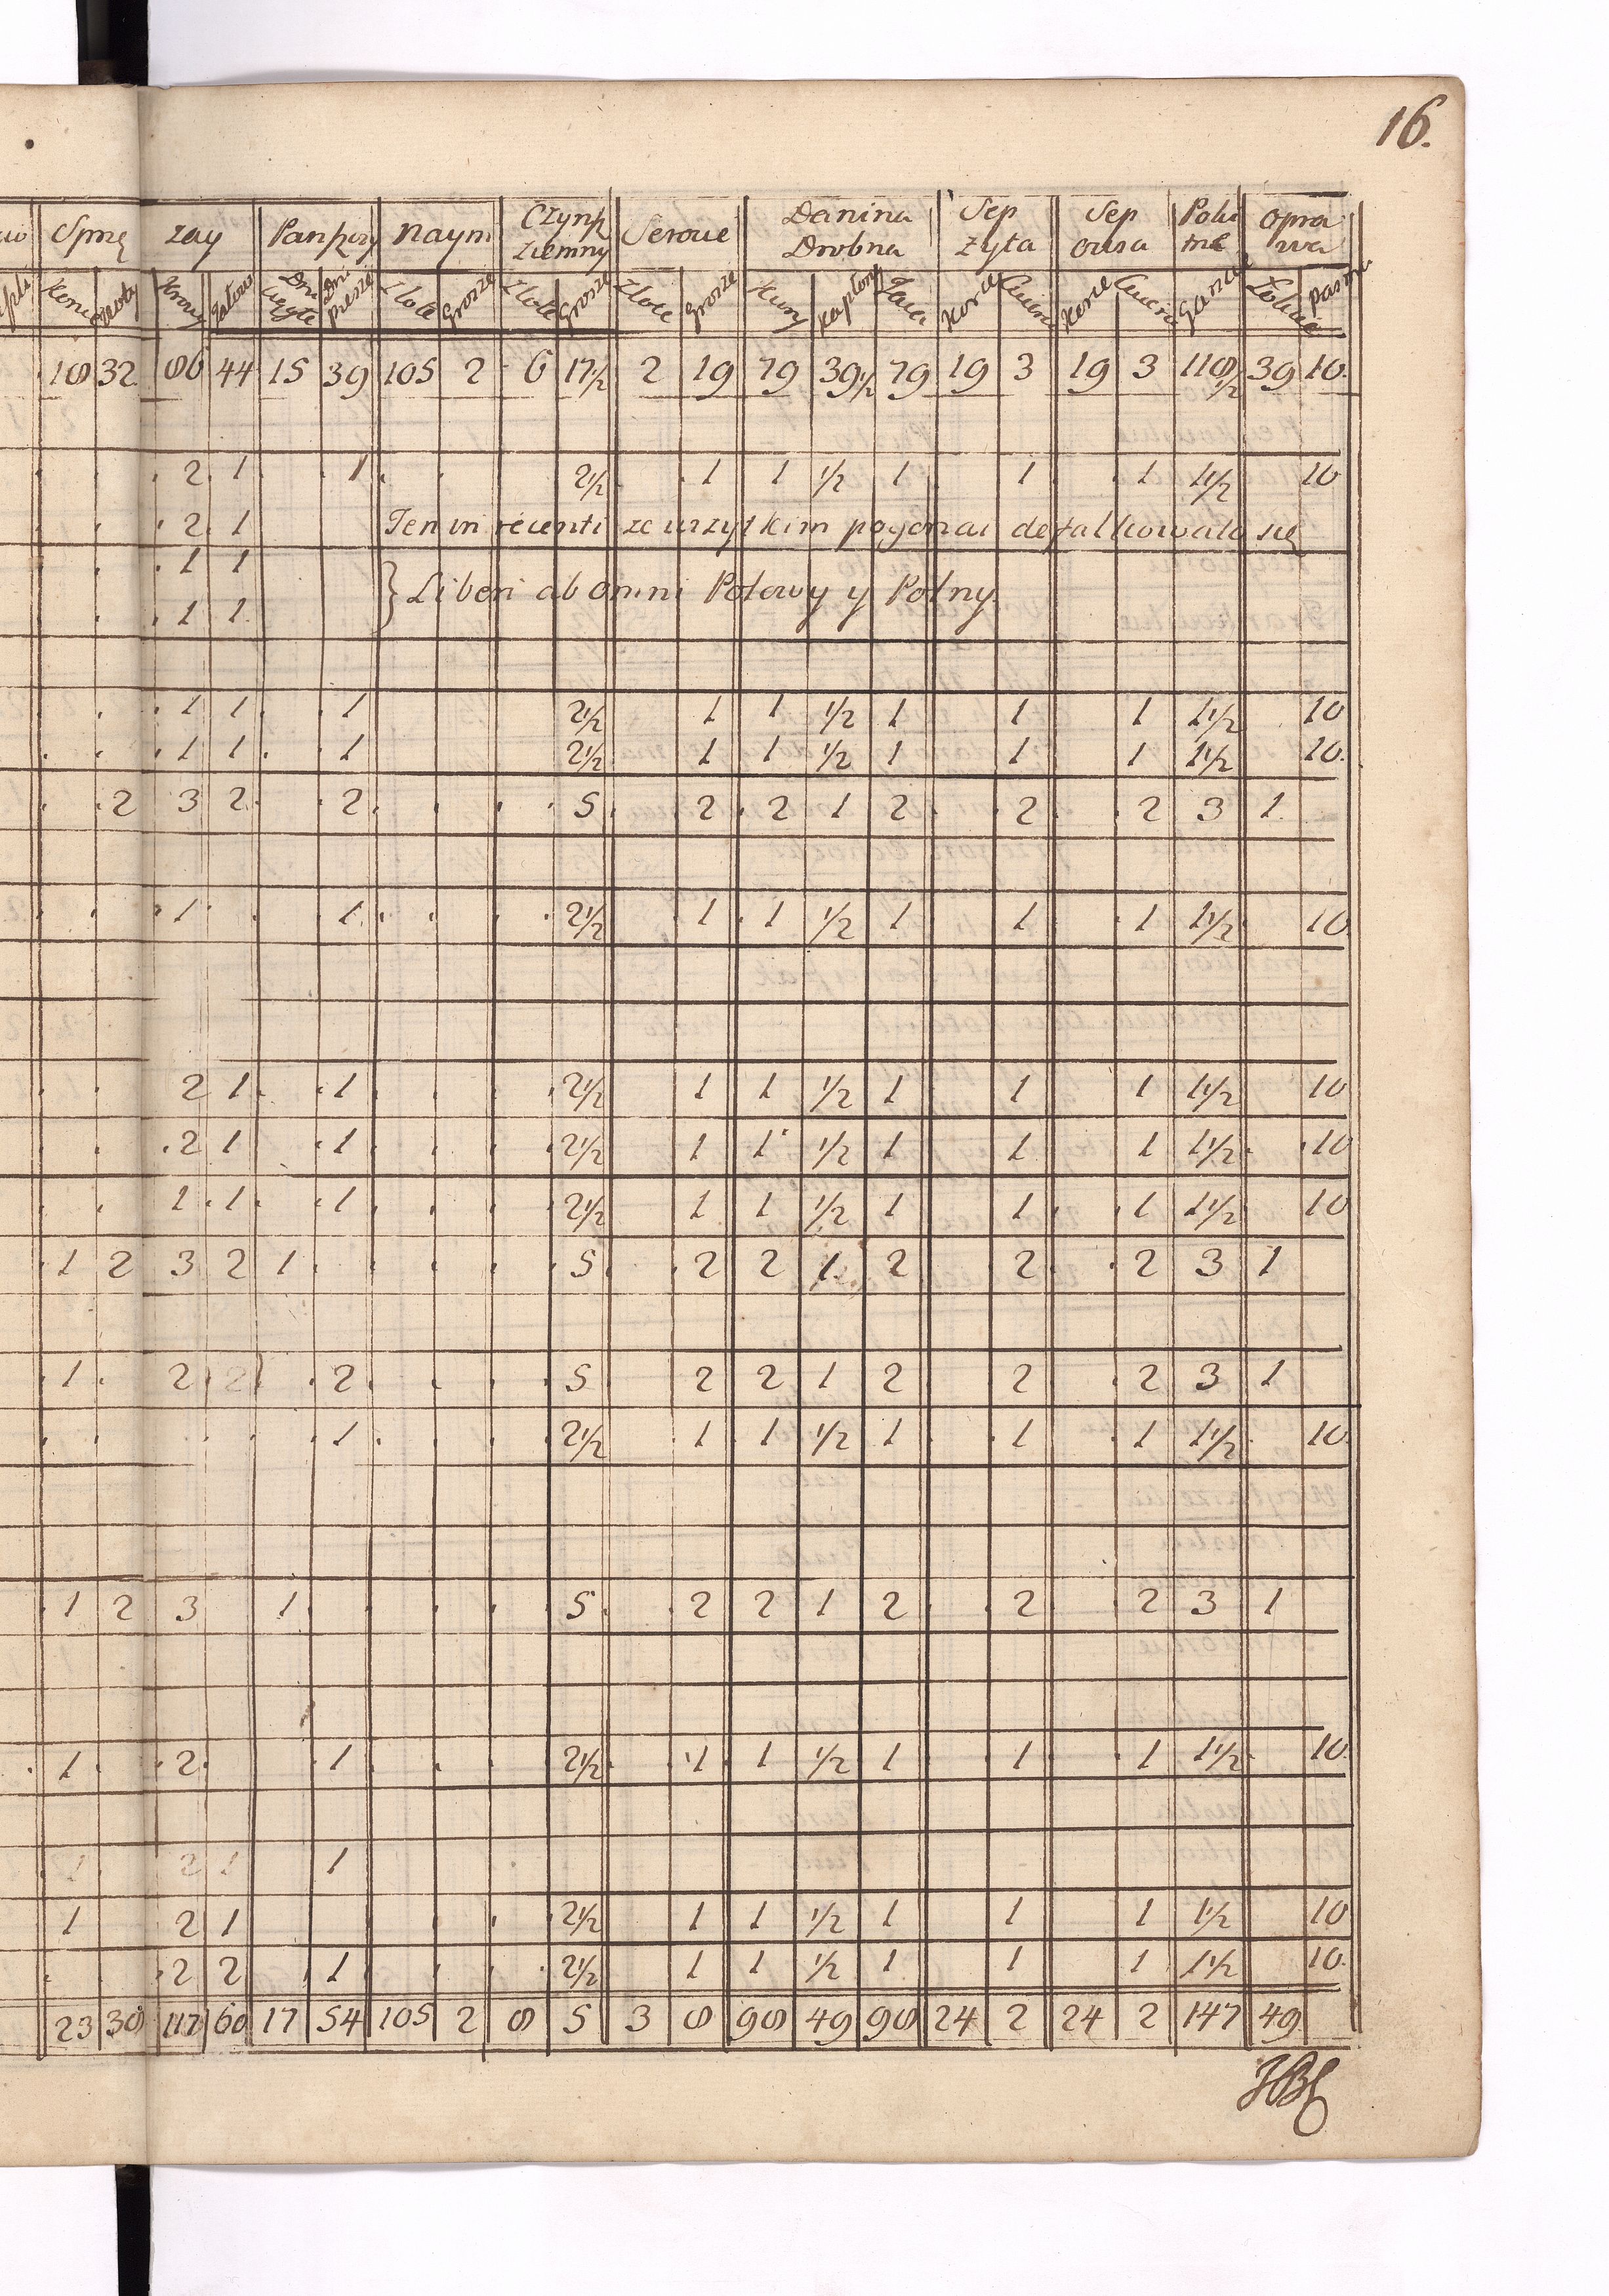 16.
Sprzę zay Panszczy Naym Czynsz Serowe Danina Sep Sep Połu Opra
ziemny Drobna żyta owsa tne wa
Konie Woły Krowy Jałowe Dni ciągłe Dni piesze Złote Grosze Złote Grosze Złote Grosze Kury Kapłony Jaia Korce Cwierci Korce Cwierci Garnce Łokcie Pasma
18 32 86 44 15 39 105 2 6 17½ 2 19 79 39½ 79 19 3 19 3 118½ 39 10.
2 1 1 2½ 1 1 ½ 1 1 1 1½ 10
2 1 Ten in recenti ze wszytkim pogorzał defalkowało się
1 1
} Liberi ab omni Polowy y Polny
1 1
1 1 1 2½ 1 1 ½ 1 1 1 1½ 10
1 1 1 2½ 1 1 ½ 1 1 1 1½ 10.
2 3 2 2 5 2 2 1 2 2 2 3 1
1 1 2½ 1 1 ½ 1 1 1 1½ 10.
2 1 1 2½ 1 1 ½ 1 1 1 1½ 10
2 1 1 2½ 1 1 ½ 1 1 1 1½ 10
1 1 1 2½ 1 1 ½ 1 1 1 1½ 10
1 2 3 2 1 5 2 2 1 2 2 2 3 1
1 2 2 2 5 2 2 1 2 2 2 3 1
1 2½ 1 1 ½ 1 1 1 1½ 10.
1 2 3 1 5 2 2 1 2 2 2 3 1
1 2 1 2½ 1 1 ½ 1 1 1 1½ 10.
1 2 1 1
1 2 1 2½ 1 1 ½ 1 1 1 1½ 10
2 2 1 2½ 1 1 ½ 1 1 1 1½ 10.
23 38 117 60 17 54 105 2 8 5 3 8 98 49 98 24 2 24 2 147 49